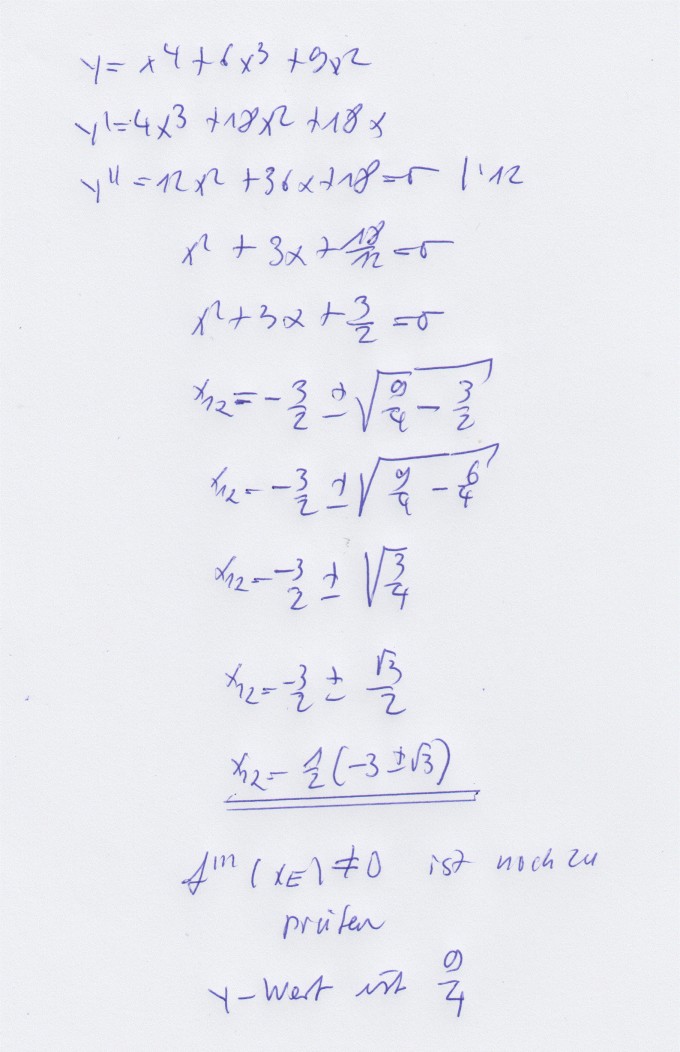 y = x⁴ + 6x³ + 9x²
y' = 4x³ + 18x² + 18x
y'' = 12x² + 36x + 18 = 0 | : 12
x² + 3x + 18/12 = 0
x² + 3x + 3/2 = 0
x₁₂ = - 3/2 ± √(9/4 - 3/2)
x₁₂ = - 3/2 ± √(9/4 - 6/4)
x₁₂ = -3/2 ± √(3/4)
x₁₂ = -3/2 ± √3/2
x₁₂ = 1/2 (-3 ± √3)
f''' (x_E) ≠ 0 ist noch zu
prüfen
y-Wert ist 9/4